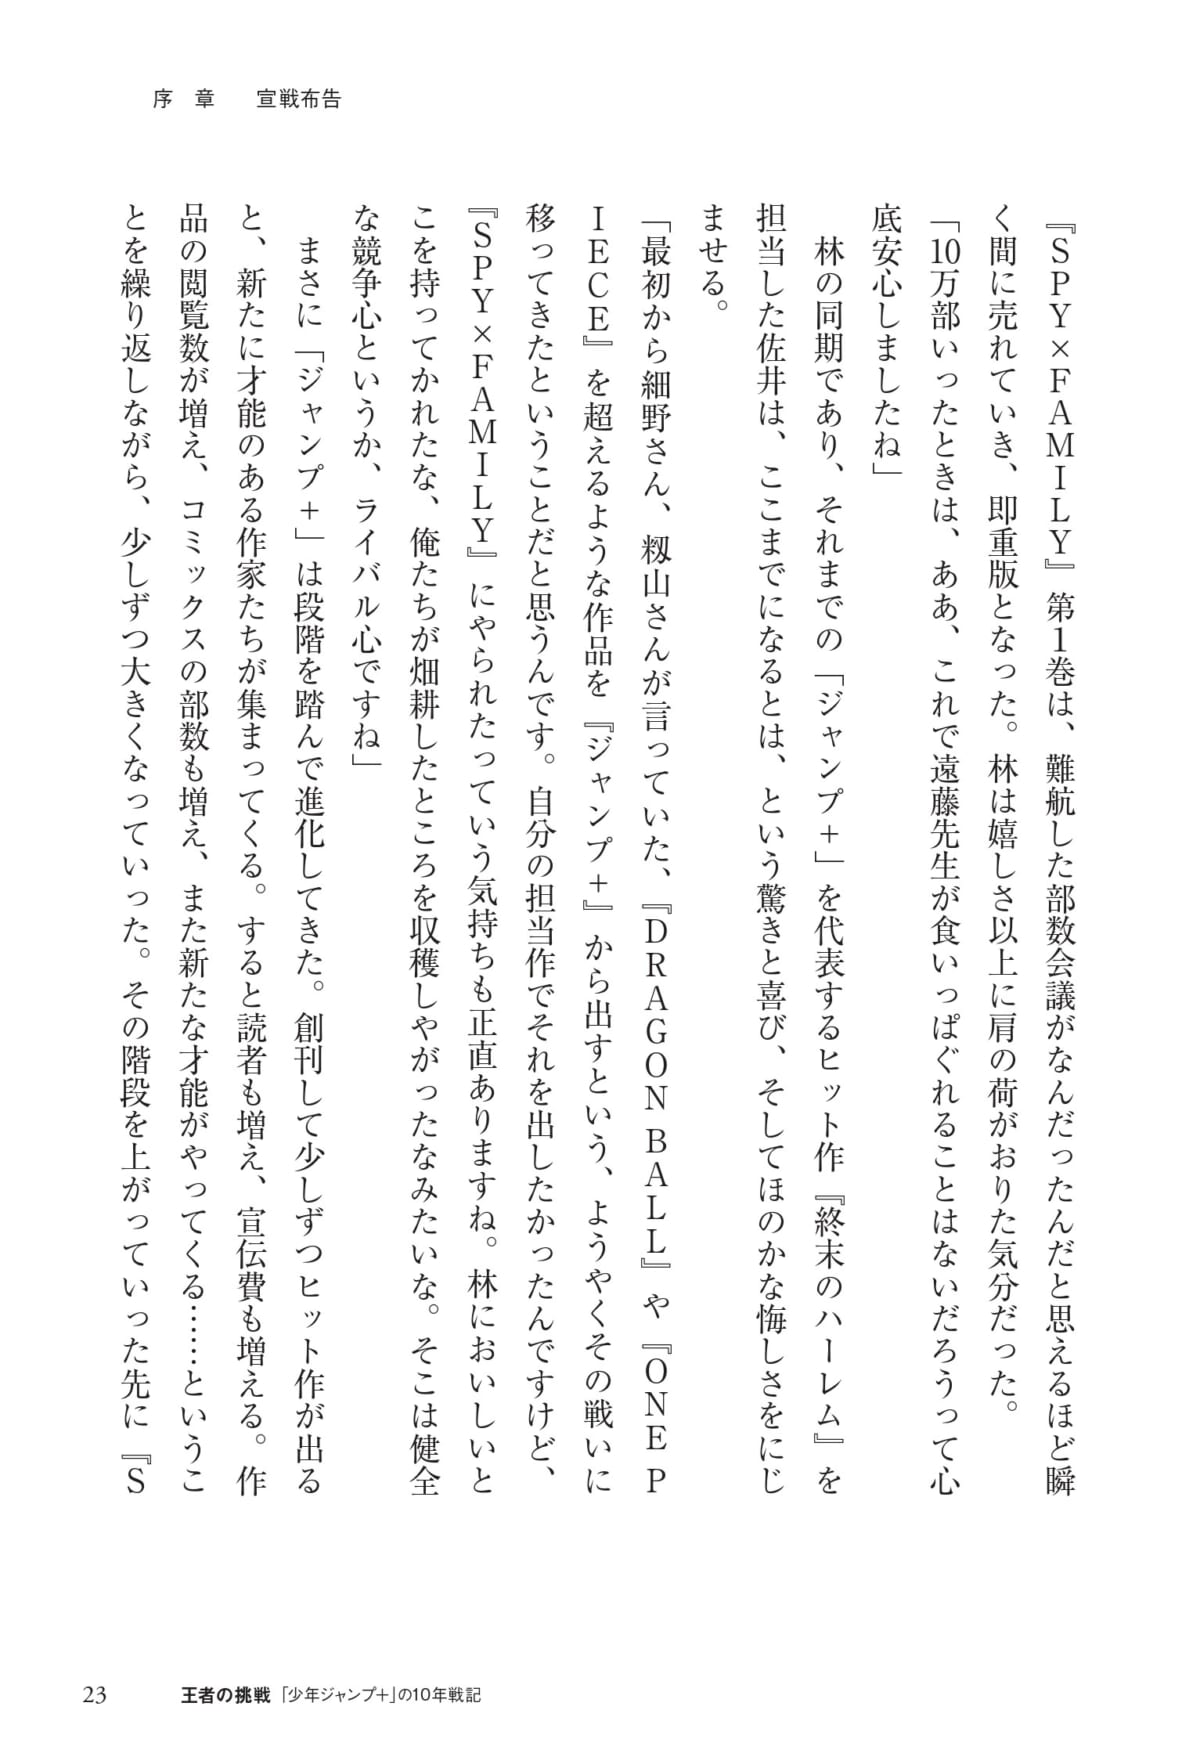 序　章　　宣戦布告
『SPY×FAMILY』第1巻は、難航した部数会議がなんだったんだと思えるほど瞬
く間に売れていき、即重版となった。林は嬉しさ以上に肩の荷がおりた気分だった。
「10万部いったときは、ああ、これで遠藤先生が食いっぱぐれることはないだろうって心
底安心しましたね」
　林の同期であり、それまでの「ジャンプ＋」を代表するヒット作『終末のハーレム』を
担当した佐井は、ここまでになるとは、という驚きと喜び、そしてほのかな悔しさをにじ
ませる。
「最初から細野さん、籾山さんが言っていた、『DRAGON BALL』や『ONE P
IECE』を超えるような作品を『ジャンプ＋』から出すという、ようやくその戦いに
移ってきたということだと思うんです。自分の担当作でそれを出したかったんですけど、
『SPY×FAMILY』にやられたっていう気持ちも正直ありますね。林においしいと
こを持ってかれたな、俺たちが畑耕したところを収穫しやがったなみたいな。そこは健全
な競争心というか、ライバル心ですね」
　まさに「ジャンプ＋」は段階を踏んで進化してきた。創刊して少しずつヒット作が出る
と、新たに才能のある作家たちが集まってくる。すると読者も増え、宣伝費も増える。作
品の閲覧数が増え、コミックスの部数も増え、また新たな才能がやってくる……というこ
とを繰り返しながら、少しずつ大きくなっていった。その階段を上がっていった先に『S
23　王者の挑戦 「少年ジャンプ＋」の10年戦記